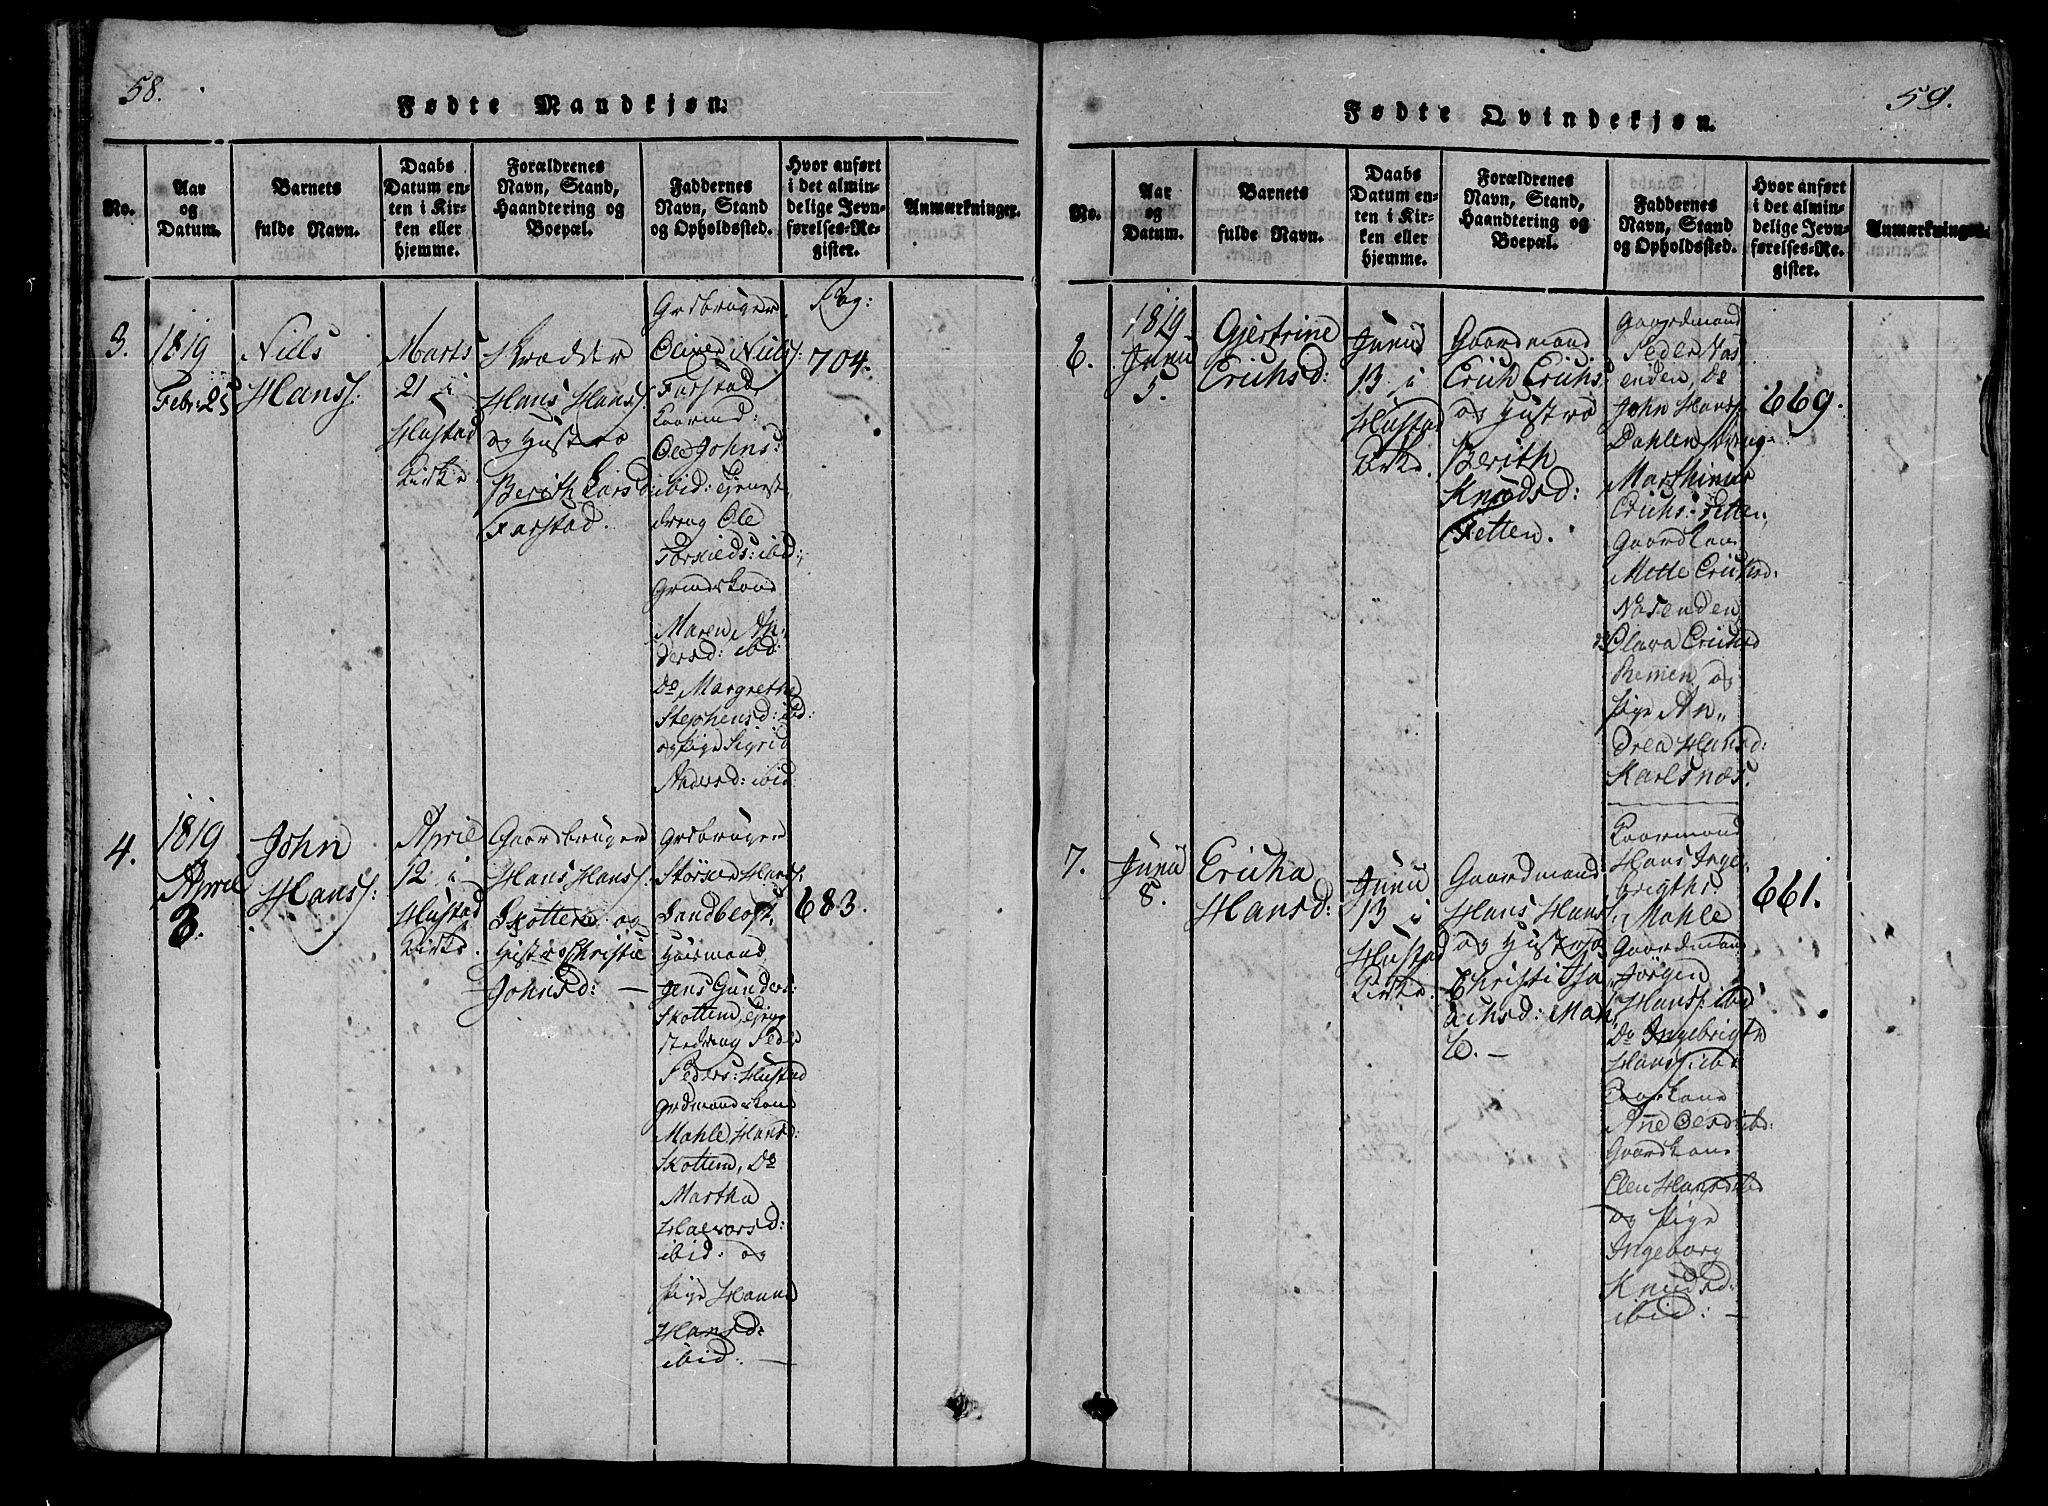 58.
Fødte Mandkjøn.
No.
Aar
og
Datum.
Barnets
fulde Navn.
Daabs
Datum en-
ten i Kir-
ken eller
hjemme.
Forældrenes
Navn, Stand,
Haandtering og
Boepæl.
Faddernes
Navn, Stand
og Opholdssted.
Hvor anført
i det almin-
delige Jevn-
førelses-Re-
gister.
Anmærkninger.
3.
1819
Febr: 25
Niels
Hanss:
Marts
21 i
Hustad
Kirke
Skrædder
Hans Hanss:
og Hustroe
Berith Larsd:
Farstad.
Grdbruger
Oliver Niels:
Farstad
Ole Johns:
ibid: Tjenest
dreng Ole
Torkilds: ibid:,
Maren An-
dersd: ibid:
Do Margrethe
Stephensd: ibid:
og Pige Sigrid
Andersd: ibid
Pag:
704.
4.
1819
April
3.
John
Hanss:
April
12 i
Hustad
Kirke.
Gaardbruger
Hans Hanss:
Skotten og
Hustroe Christie
Johnsd: —
Grdbruger
Størker Hanss:
Sandblost,
Huusmand
Jens Gunders:
Skottem, Tjene
stedreng Peder
Peders: Hustad
Grdmandskone
Mahle Hansd:
Skottem, Do
Martha
Halvorsd:
ibid: og
Pige Hanna
Hansd:
ibid: —
683.
59.
Fødte Qvindekjøn.
No.
Aar
og
Datum.
Barnets
fulde Navn.
Daabs
Datum en-
ten i Kir-
ken eller
hjemme.
Forældrenes
Navn, Stand,
Haandtering og
Boepæl.
Faddernes
Navn, Stand
og Opholdssted.
Hvor anført
i det almin-
delige Jevn-
førelses-Re-
gister.
Anmærkninger.
6.
1819.
Junii
5.
Gjertrine
Erichsd:
Junii
13 i
Hustad
Kirke.
Gaardmand
Erich Erichs:
og Hustroe
Berith
Knudsd:
Tetten.
Gaardmand
Peder Nas
enden, Do
John Hanss:
Dahlen, Dreng
Marthinus
Erichs: Tetten,
Gaardkone
Mette Erichsd:
Nasenden
Do Olava Erichsd
Remen og
Pige An-
drea Hansd:
Karlsnæs.
669.
7.
Junii
8.
Ericha
Hansd:
Junii
13 i
Hustad
Kirke.
Gaardmand
Hans Hanss:
og Hustroe
Christi Isa
achsd: Mah
le. —
Kaarmand
Hans Inge-
brigths:
Mahle
Gaardmand
Jørgen
Hanss: ibid
Do Ingebrigt
Hanss: ibid
Kaarkone
Ane Olesd: ibid:
Gaardkone
Elen Hansd: ibid
og Pige
Ingeborg
Knudsd:
ibid: —
661.